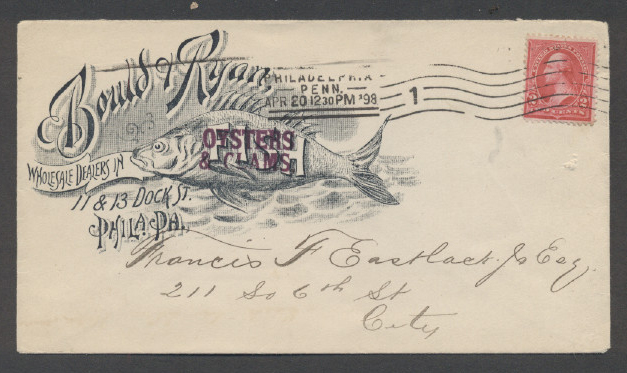 Bould & Ryan
PHILADELPHIA
PENN.
APR 20 12 30 PM '98
1
2 CENTS 2
FISH
OYSTERS
& CLAMS
WHOLESALE DEALERS IN
11 & 13 DOCK ST.
PHILA. PA.
Francis F Eastlack Jr Esq.
211 So 6th St
City